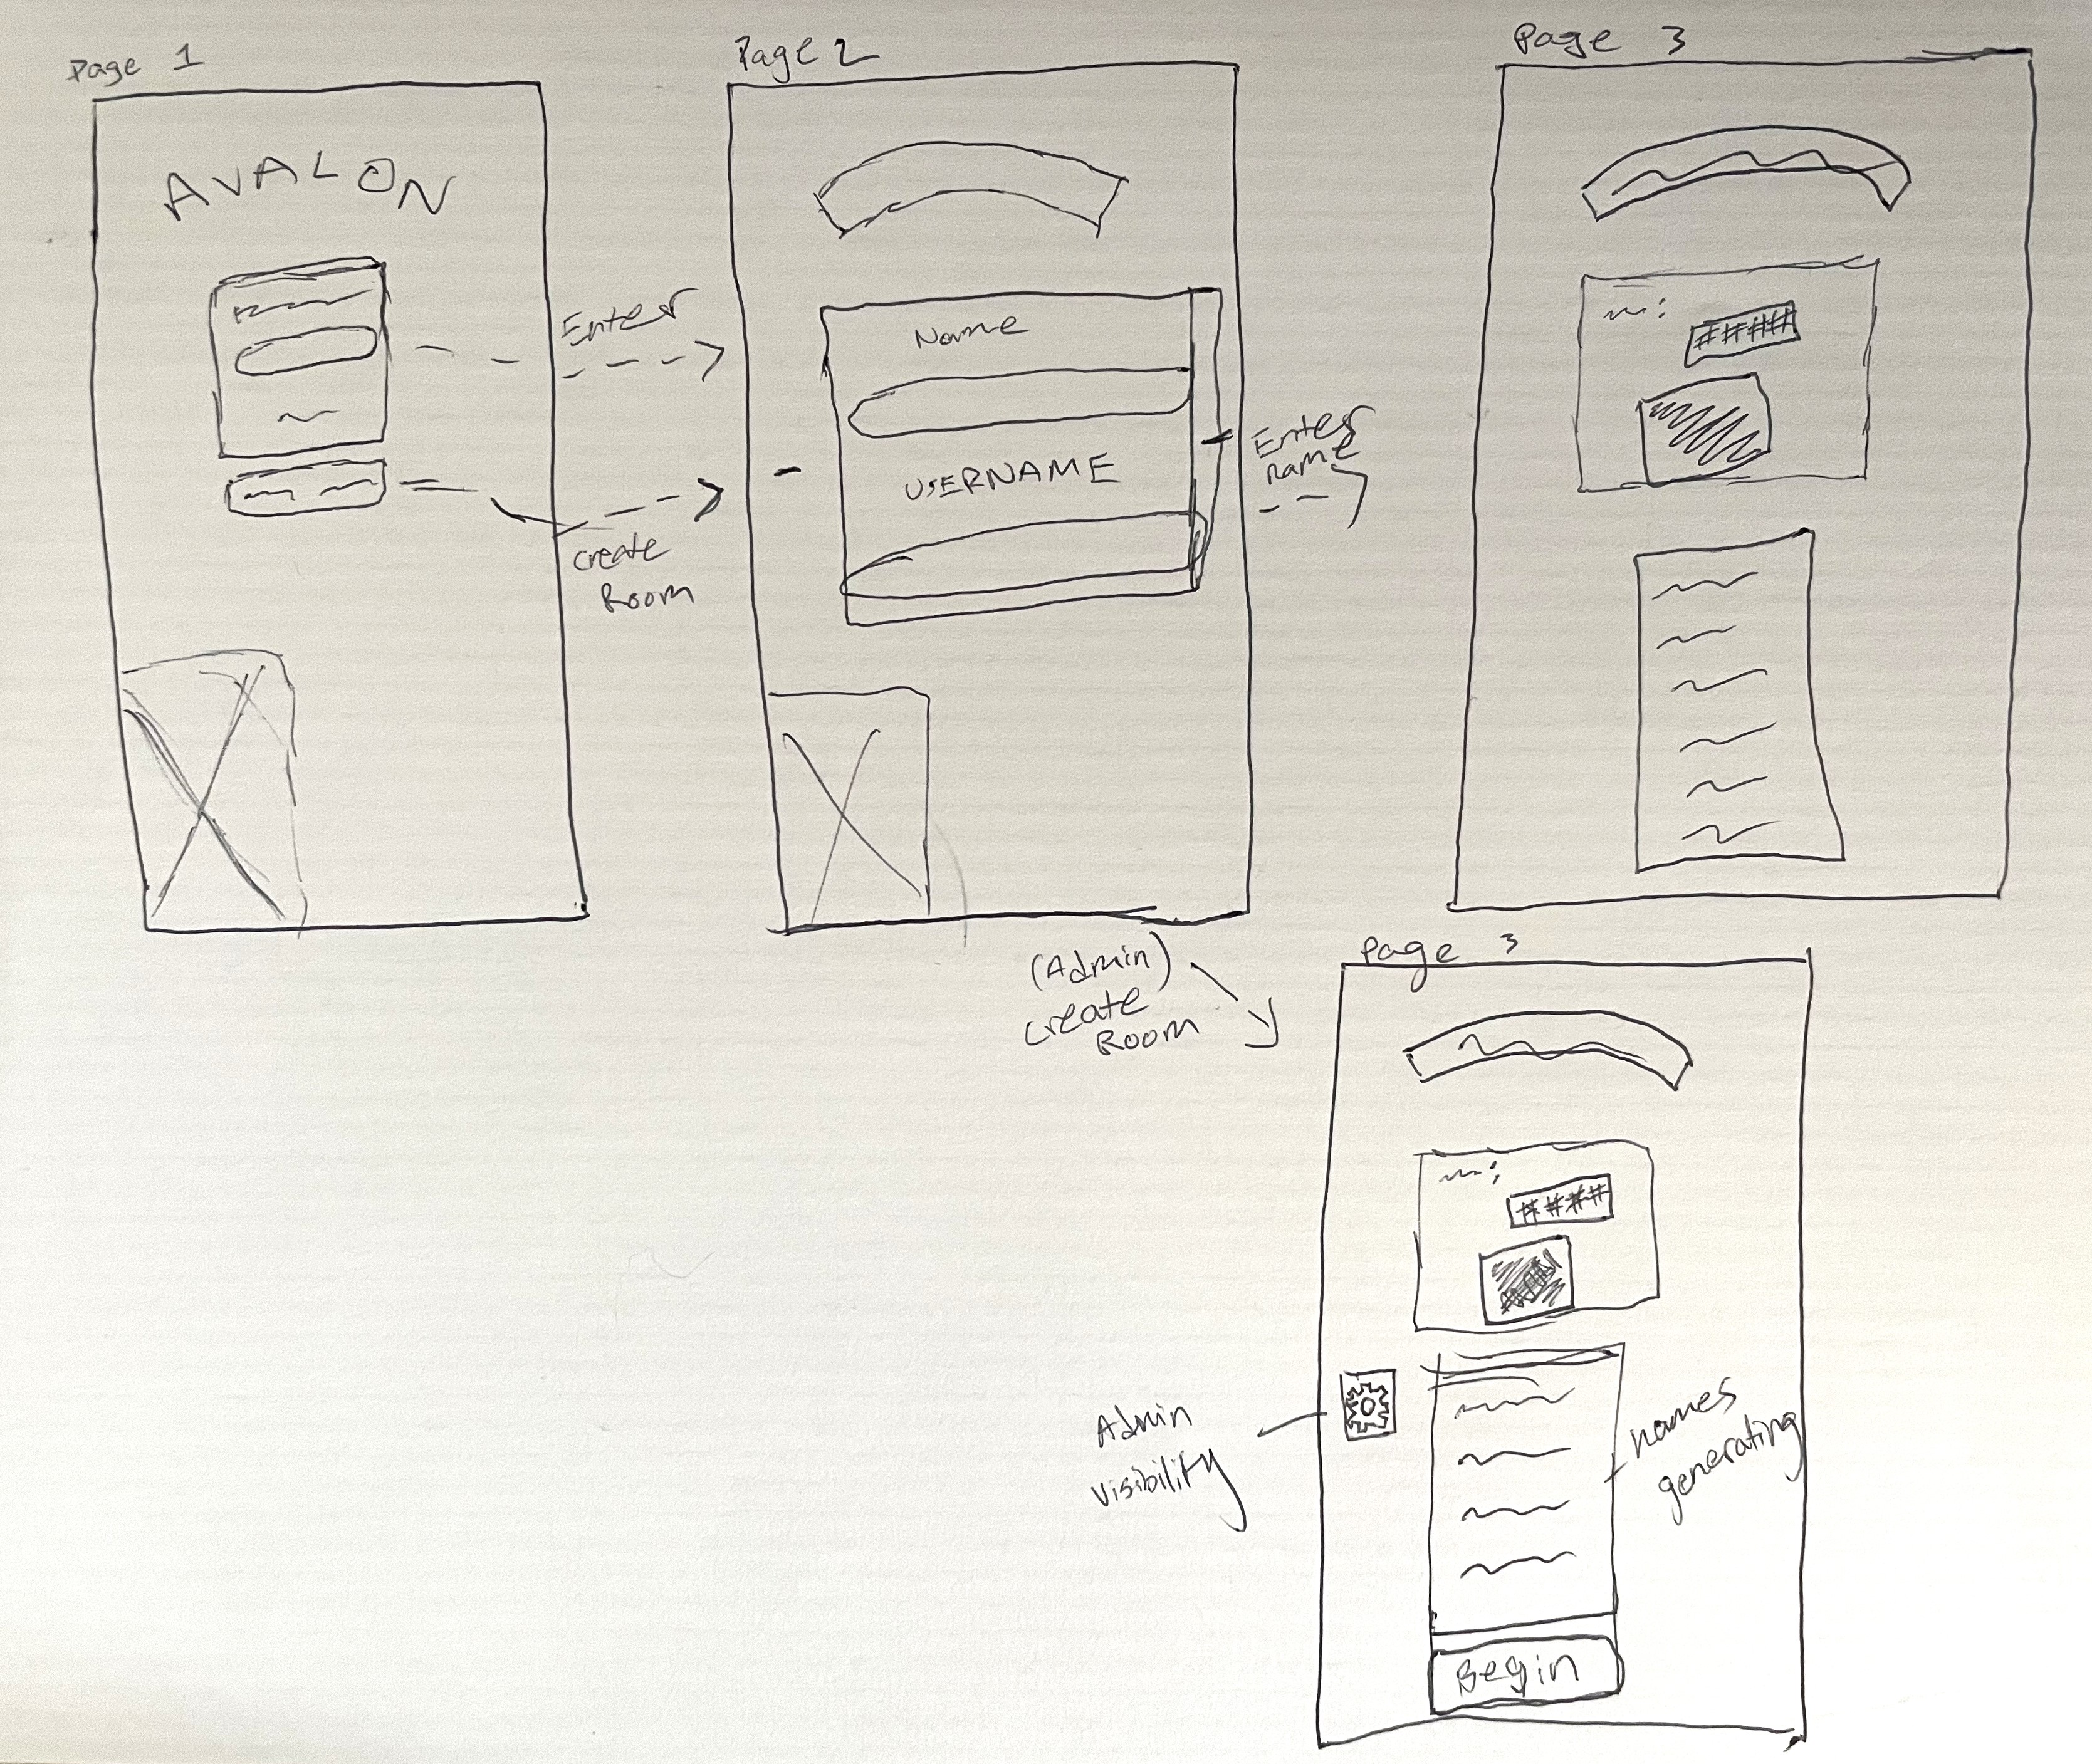 Page 1
AVALON
Enter
Create
Room
Page 2
Name
USERNAME
Enter
name
Page 3
#####
(Admin)
Create
Room
Page 3
####
Admin
visibility
names
generating
Begin